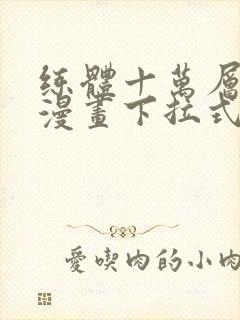 练體十萬層
漫畫下拉式
愛喫肉的小肉